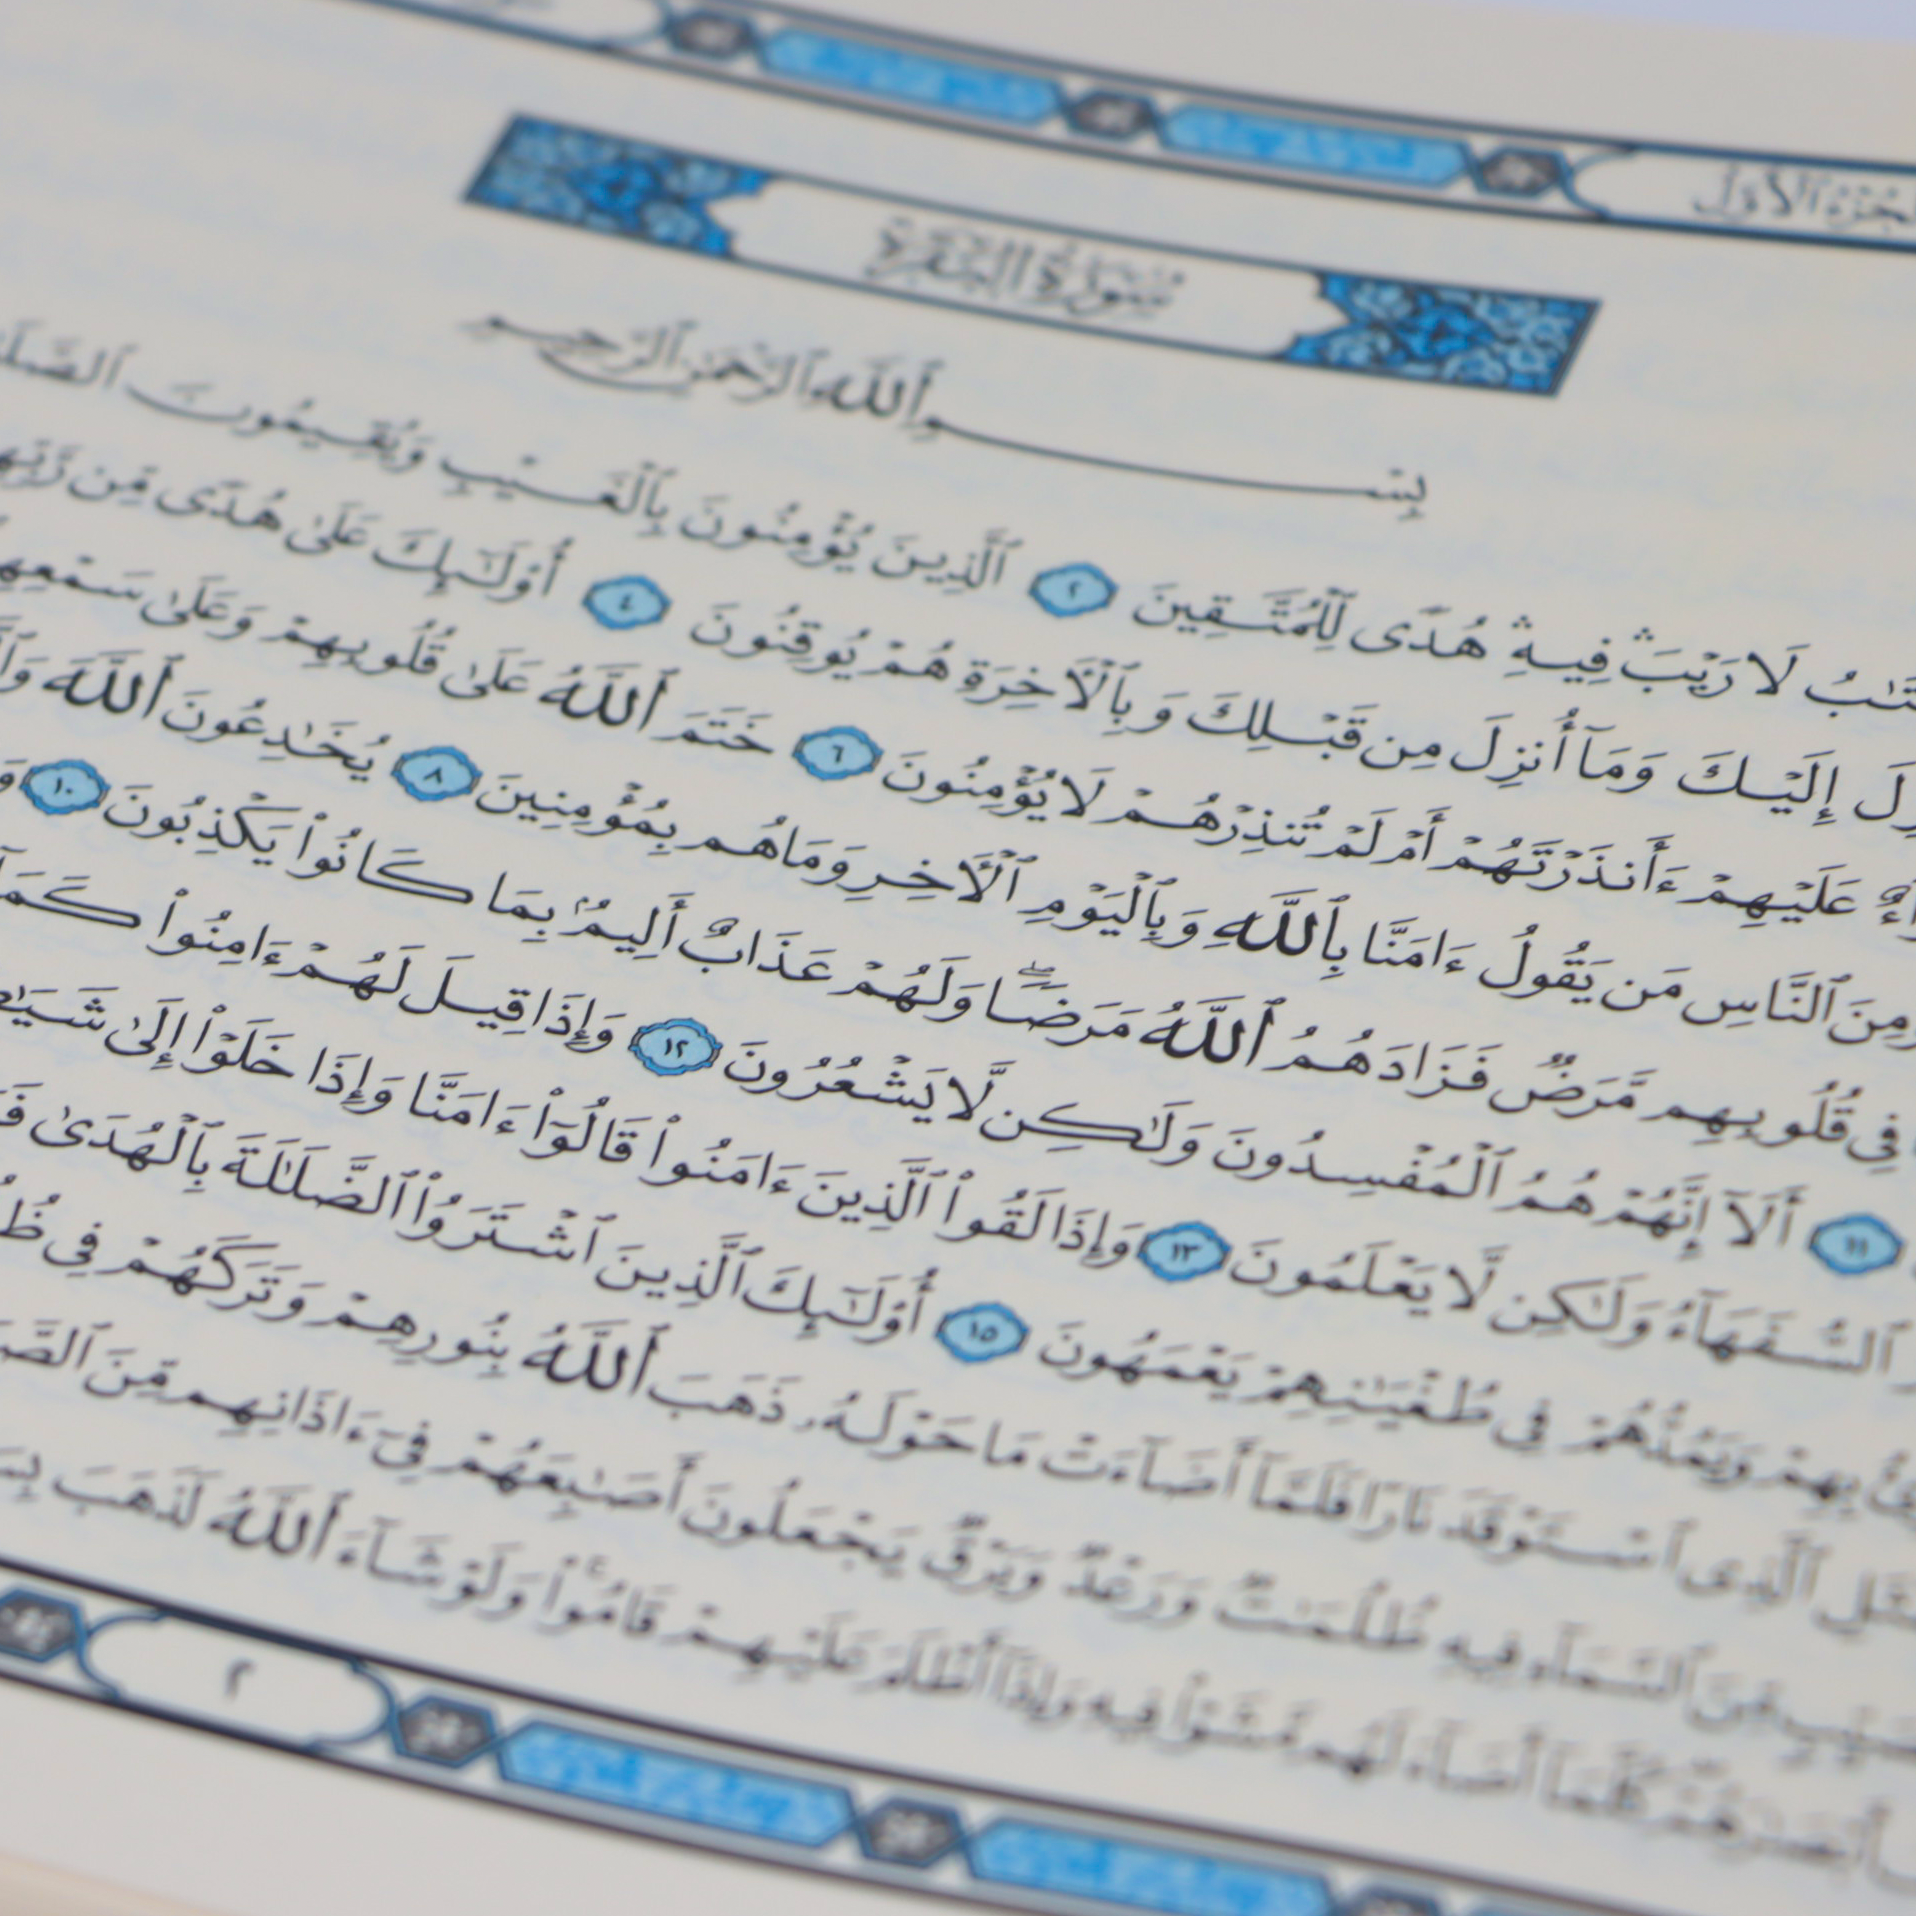 الجزء الأول
سورة البقرة
بِسۡمِ ٱللَّهِ ٱلرَّحۡمَٰنِ ٱلرَّحِيمِ
لَا رَيۡبَۛ فِيهِۛ هُدٗى لِّلۡمُتَّقِينَ ٢ ٱلَّذِينَ يُؤۡمِنُونَ بِٱلۡغَيۡبِ وَيُقِيمُونَ
إِلَيۡكَ وَمَآ أُنزِلَ مِن قَبۡلِكَ وَبِٱلۡأٓخِرَةِ هُمۡ يُوقِنُونَ ٤ أُوْلَٰٓئِكَ عَلَىٰ هُدٗى مِّن
عَلَيۡهِمۡ ءَأَنذَرۡتَهُمۡ أَمۡ لَمۡ تُنذِرۡهُمۡ لَا يُؤۡمِنُونَ ٦ خَتَمَ ٱللَّهُ عَلَىٰ قُلُوبِهِمۡ وَعَلَىٰ
ٱلنَّاسِ مَن يَقُولُ ءَامَنَّا بِٱللَّهِ وَبِٱلۡيَوۡمِ ٱلۡأٓخِرِ وَمَا هُم بِمُؤۡمِنِينَ ٨ يُخَٰدِعُونَ ٱللَّهَ
فِي قُلُوبِهِم مَّرَضٞ فَزَادَهُمُ ٱللَّهُ مَرَضٗاۖ وَلَهُمۡ عَذَابٌ أَلِيمُۢ بِمَا كَانُواْ يَكۡذِبُونَ ١٠
١١ أَلَآ إِنَّهُمۡ هُمُ ٱلۡمُفۡسِدُونَ وَلَٰكِن لَّا يَشۡعُرُونَ ١٢ وَإِذَا قِيلَ لَهُمۡ ءَامِنُواْ كَمَآ
ٱلسُّفَهَآءُ وَلَٰكِن لَّا يَعۡلَمُونَ ١٣ وَإِذَا لَقُواْ ٱلَّذِينَ ءَامَنُواْ قَالُوٓاْ ءَامَنَّا وَإِذَا خَلَوۡاْ إِلَىٰ
بِهِمۡ وَيَمُدُّهُمۡ فِي طُغۡيَٰنِهِمۡ يَعۡمَهُونَ ١٥ أُوْلَٰٓئِكَ ٱلَّذِينَ ٱشۡتَرَوُاْ ٱلضَّلَٰلَةَ بِٱلۡهُدَىٰ
ٱلَّذِي ٱسۡتَوۡقَدَ نَارٗا فَلَمَّآ أَضَآءَتۡ مَا حَوۡلَهُۥ ذَهَبَ ٱللَّهُ بِنُورِهِمۡ وَتَرَكَهُمۡ فِي
مِّنَ ٱلسَّمَآءِ فِيهِ ظُلُمَٰتٞ وَرَعۡدٞ وَبَرۡقٞ يَجۡعَلُونَ أَصَٰبِعَهُمۡ فِيٓ ءَاذَانِهِم مِّنَ
أَبۡصَٰرَهُمۡۖ كُلَّمَآ أَضَآءَ لَهُم مَّشَوۡاْ فِيهِ وَإِذَآ أَظۡلَمَ عَلَيۡهِمۡ قَامُواْۚ وَلَوۡ شَآءَ ٱللَّهُ لَذَهَبَ
٢